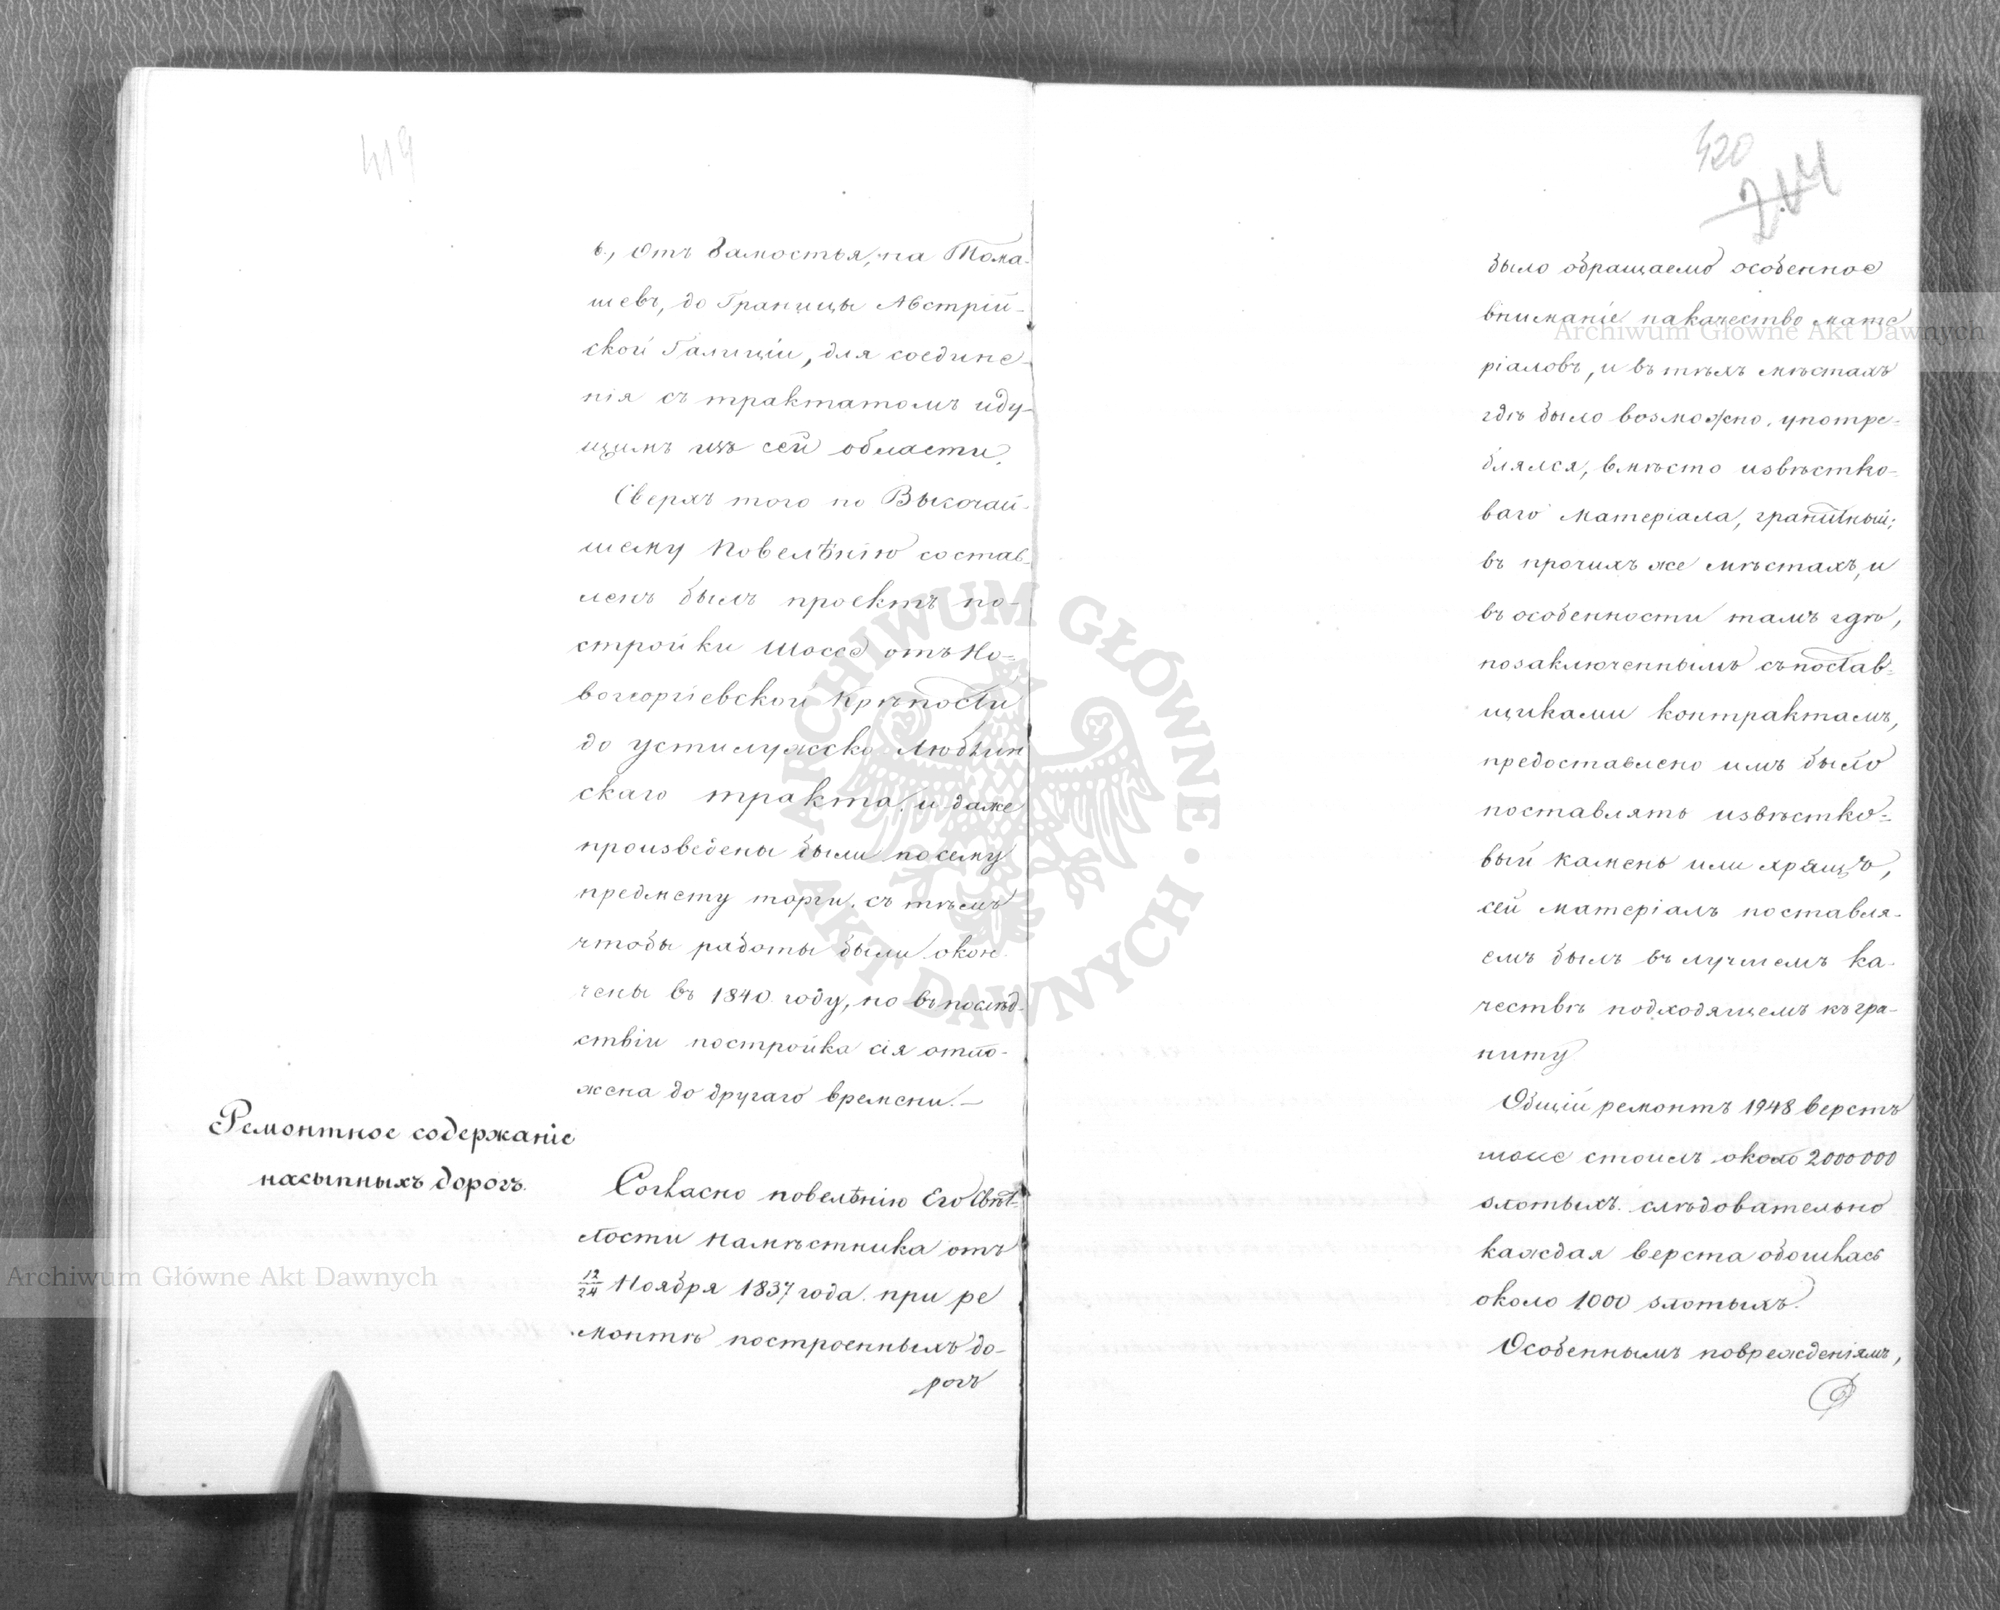 419
в, отъ Замостья, на Тома-
шевъ, до Границы Австрій-
ской Галиціи, для соедине-
нія съ трактатомъ иду-
щимъ изъ сей области.
Сверхъ того по Высочай-
шему Повелѣнію состав-
ленъ былъ проектъ по-
стройки Шоссе отъ Но-
вогеоргіевской Крѣпости
до Устилужско-Люблин
скаго тракта, и даже
произведены были посему
предмету торги, съ тѣмъ
чтобы работы были окон-
чены въ 1840 году, но впослѣд-
ствіи постройка сія отло-
жена до другаго времени.—
Ремонтное содержаніе
насыпныхъ дорогъ.
Согласно повелѣнію Его Свѣт-
лости Намѣстника отъ
12/24 Ноября 1837 года при ре
монтѣ построенныхъ до-
рогъ
420
204
было обращаемо особенное
вниманіе на качество мате
ріаловъ, и въ тѣхъ мѣстахъ
гдѣ было возможно, употре-
блялся, вмѣсто известко-
ваго матеріала, гранитный;
въ прочихъ же мѣстахъ, и
въ особенности тамъ гдѣ,
по заключеннымъ съ постав-
щиками контрактамъ,
предоставлено имъ было
поставлять известко-
вый камень или хрящъ,
сей матеріалъ поставля-
емъ былъ въ лучшемъ ка-
чествѣ подходящемъ къ гра-
ниту
Общій ремонтъ 1948 верстъ
шоссе стоилъ около 2000000
злотыхъ. слѣдовательно
каждая верста обошлась
около 1000 злотыхъ.
Особеннымъ поврежденіямъ,
Archiwum Główne Akt Dawnych
Archiwum Główne Akt Dawnych
ARCHIWUM GŁÓWNE • AKT DAWNYCH •